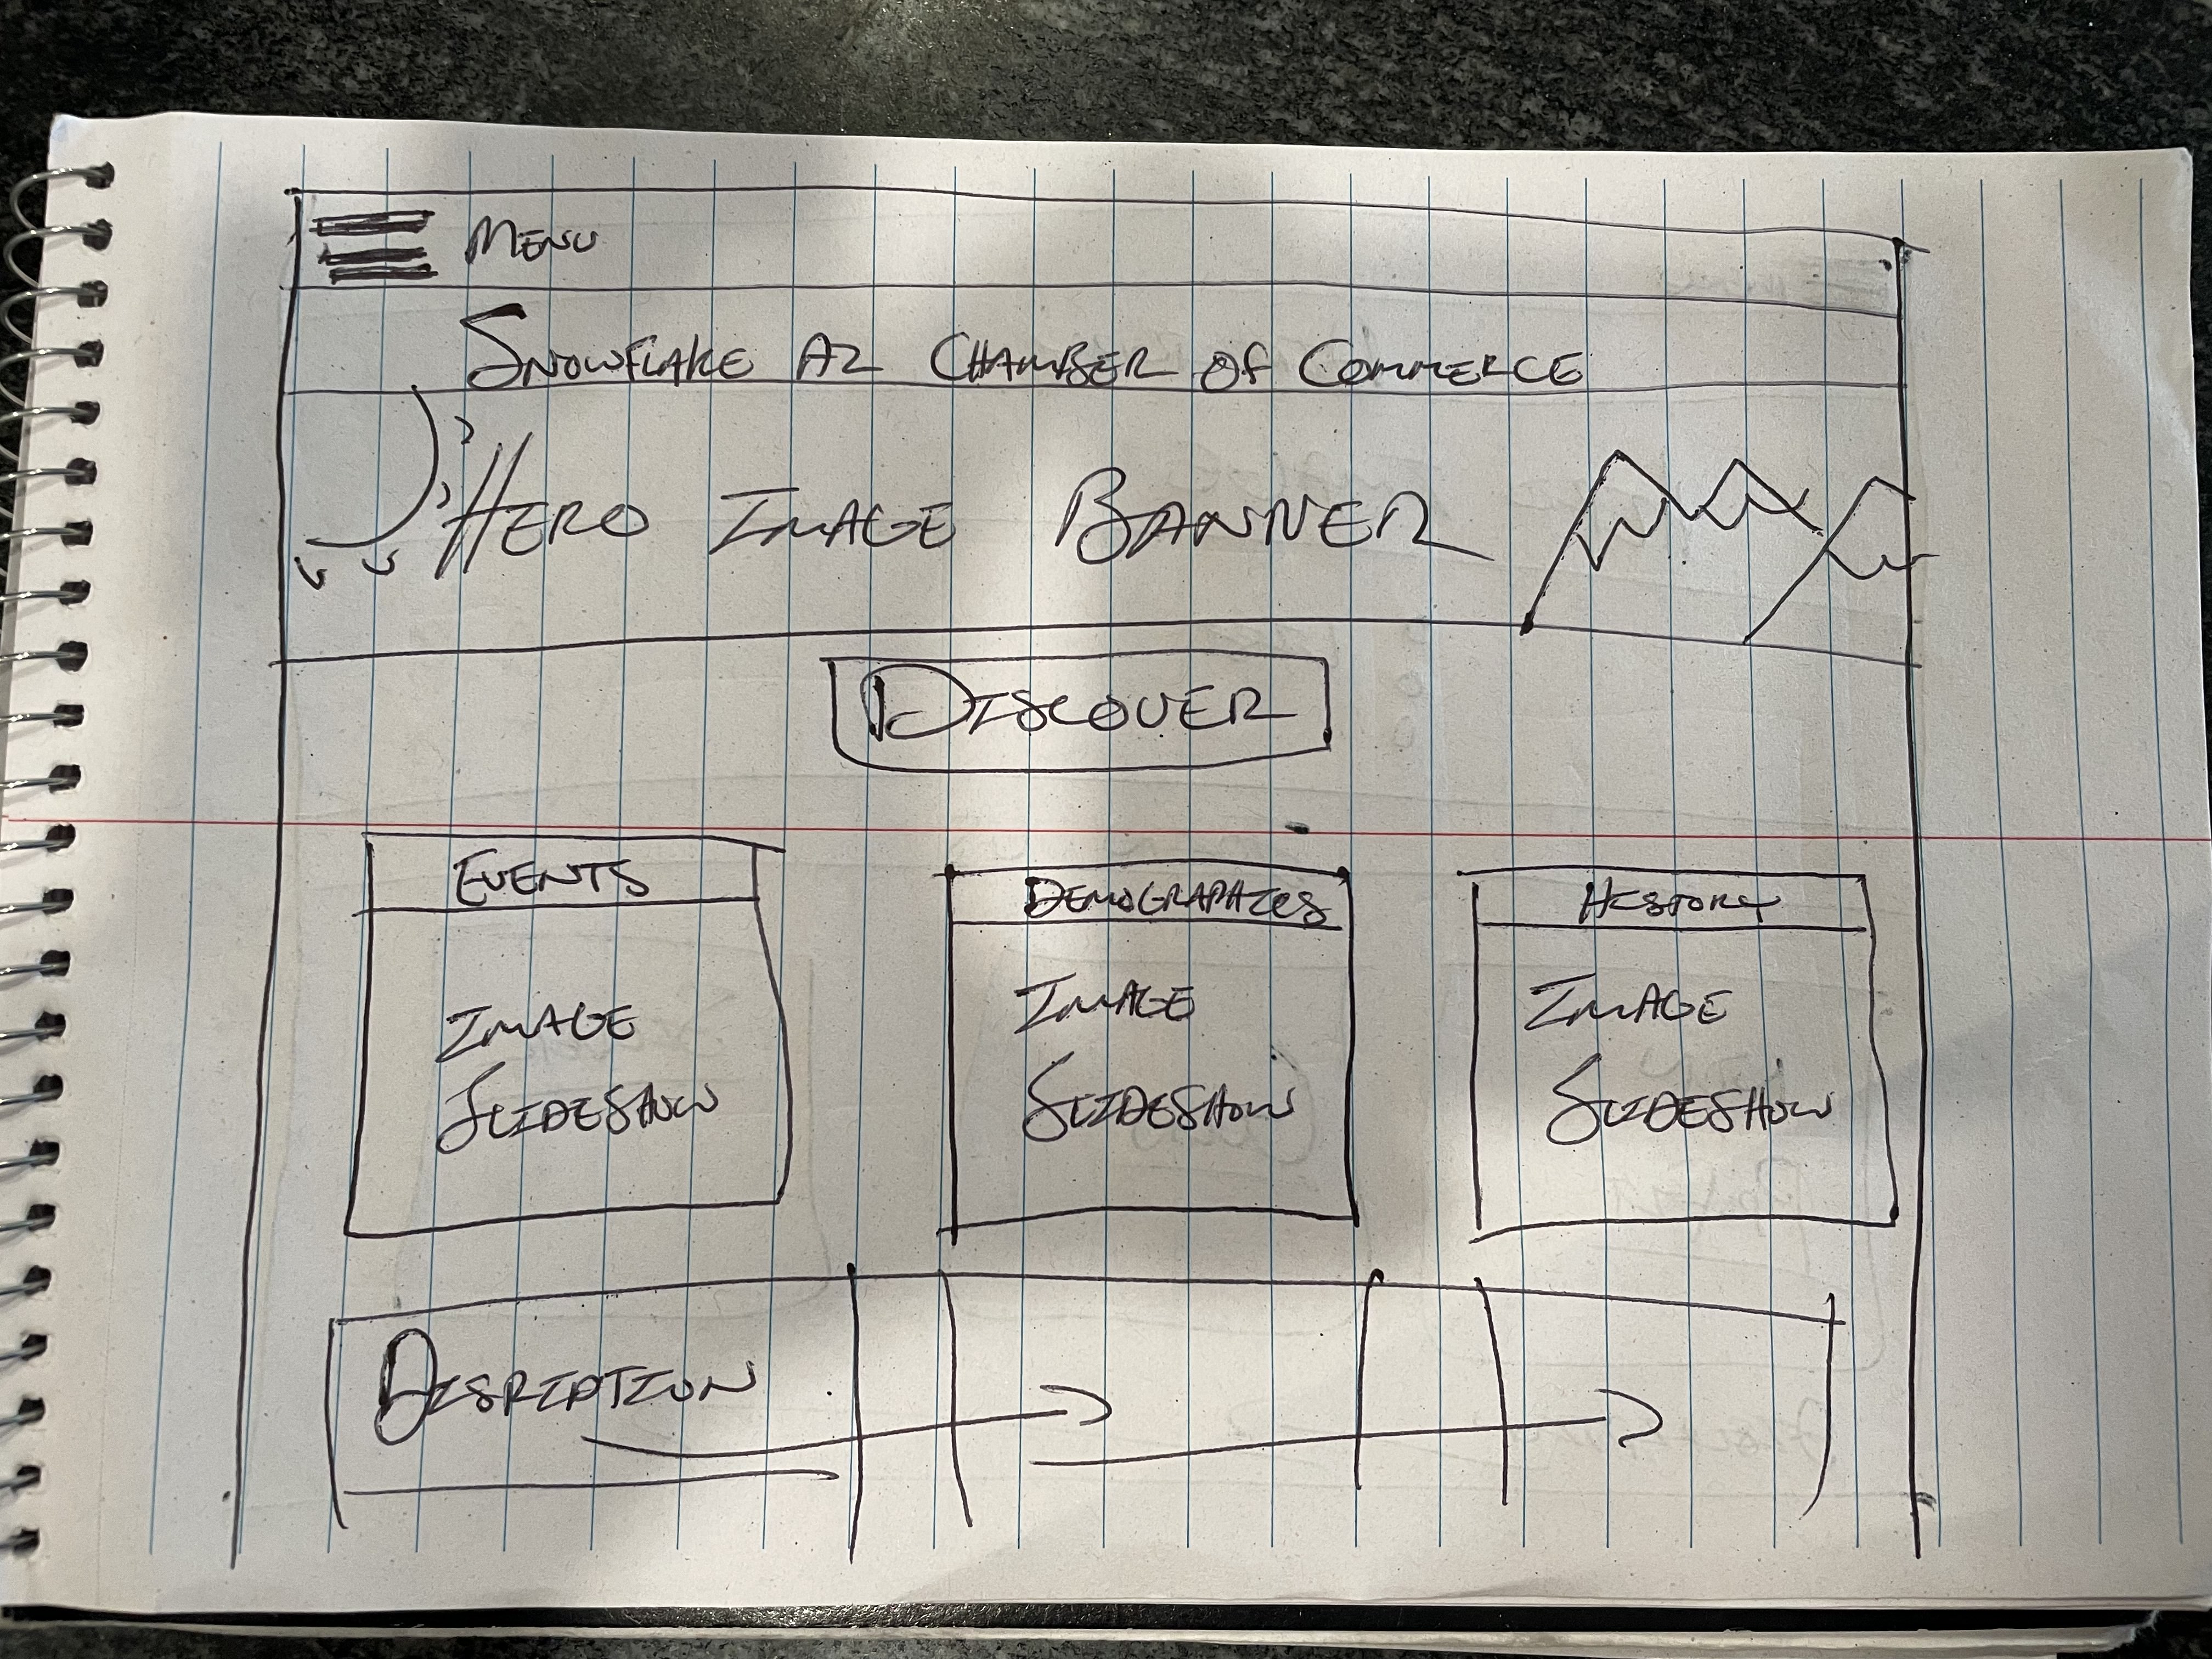 MENU
SNOWFLAKE AZ CHAMBER OF COMMERCE
HERO IMAGE BANNER
DISCOVER
EVENTS
IMAGE
SLIDESHOW
DEMOGRAPHICS
IMAGE
SLIDESHOW
HISTORY
IMAGE
SLIDESHOW
DISRIPTION